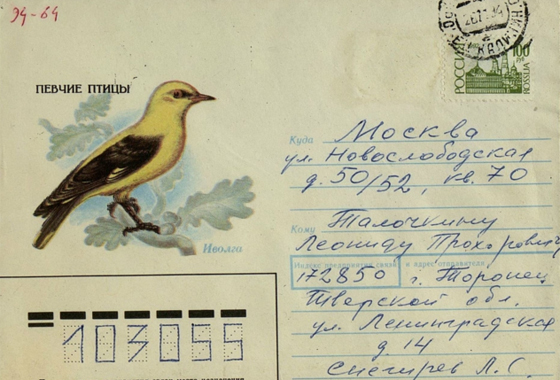 94-64
ПЕВЧИЕ ПТИЦЫ
Иволга
РОССИЯ
100
ROSSIJA
Куда Москва
ул. Новослободская
д. 50/52, кв. 70
Кому Талочкину
Леониду Прохоровичу
Индекс предприятия связи и адрес отправителя
172850 г. Торопец
Тверской обл.
ул. Ленинградская
д. 14
Снегирев Л. С.
103055